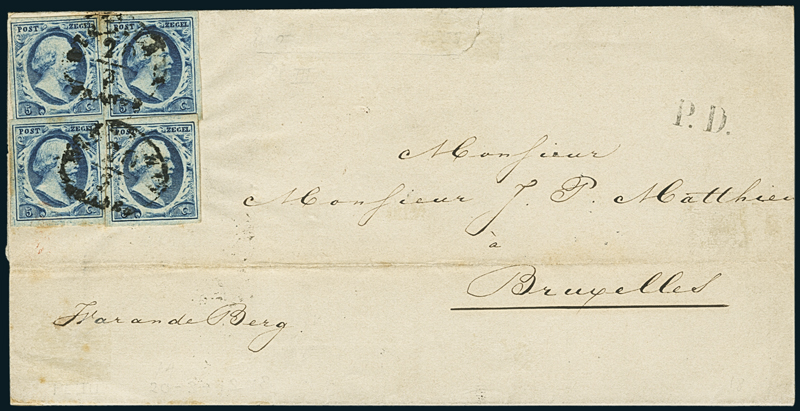 POST ZEGEL POST ZEGEL
5 C 5 C
POST ZEGEL POST ZEGEL
5 C 5 C
P.D.
Monsieur
Monsieur J. P. Matthieu
à
Bruxelles
Warande Berg